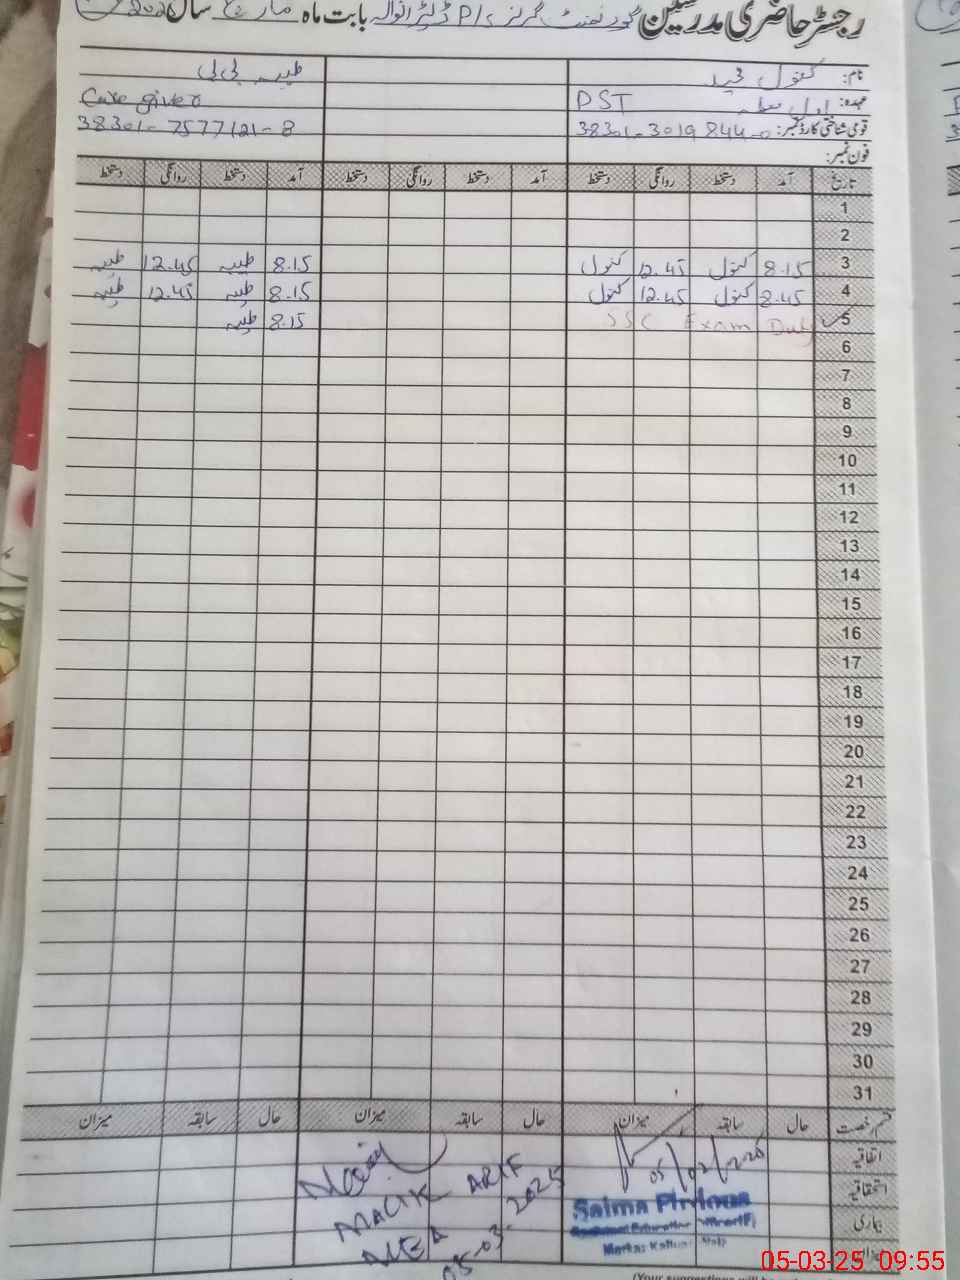 رجسٹر حاضری مدرسین گورنمنٹ گرلز P/S بابت ماہ مارچ سال
نام: کنول طیبہ بی بی
عہدہ: PST Care giver
قومی شناختی کارڈ نمبر: 38301-3019844-0 38301-7577121-8
فون نمبر:
تاریخ آمد دستخط روانگی دستخط آمد دستخط روانگی دستخط آمد دستخط روانگی دستخط
1
2
3 8.15 کنول 12.45 کنول 8.15 طیبہ 12.45 طیبہ
4 8.45 کنول 12.45 کنول 8.15 طیبہ 12.45 طیبہ
5 SSC Exam Duty 8.15 طیبہ
6
7
8
9
10
11
12
13
14
15
16
17
18
19
20
21
22
23
24
25
26
27
28
29
30
31
قسم رخصت حال سابقہ میزان حال سابقہ میزان حال سابقہ میزان
اتفاقیہ
استحقاقیہ
بیماری
MALIK ARIF
MEA
05-03-2025
Saima Firdous
Markaz
05-03-25 09:55
(Your suggestions will be